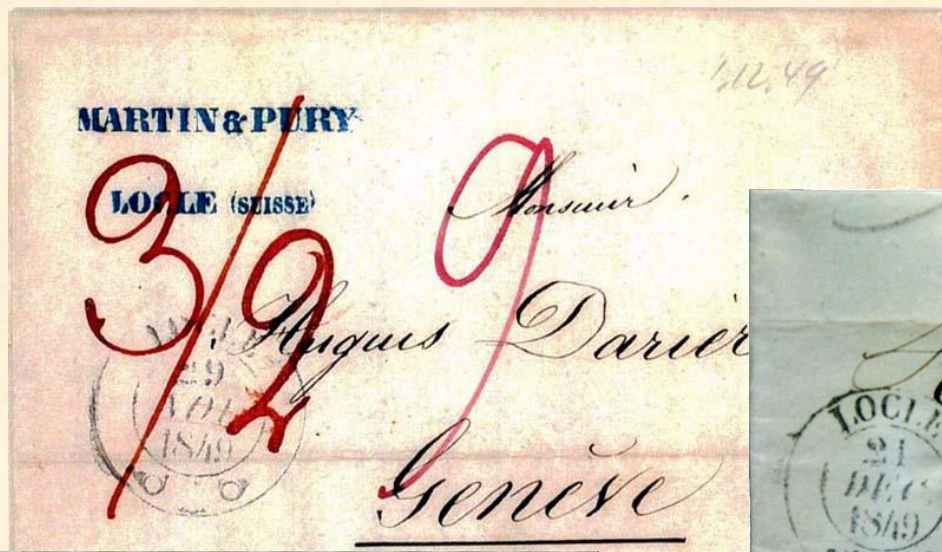 1.12.49
MARTIN & PURY
LOCLE (SUISSE)
3/2
9
Monsieur.
Hugues Darier
Genève
29
NOV
1849
LOCLE
21
DEC
1849